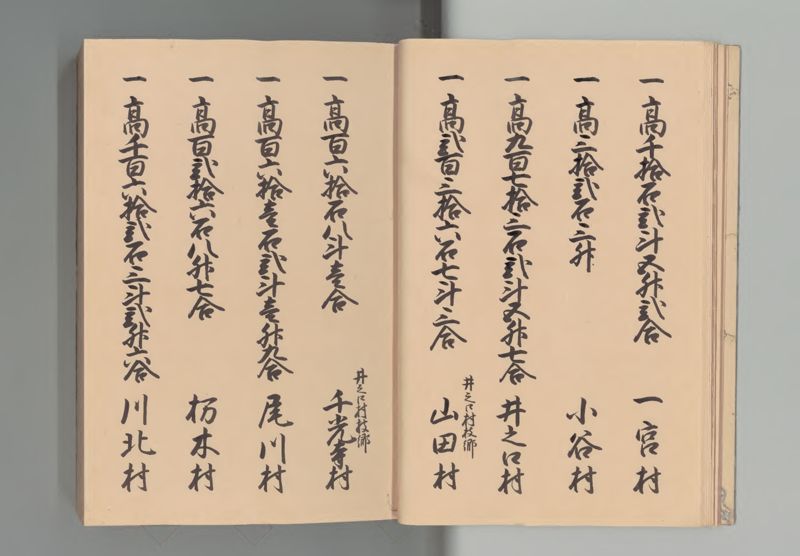 一 高千拾石弐斗五升弐合 一宮村
一 高三拾弐石三升 小谷村
一 高九百七拾三石弐斗五升七合 井之口村
井之口村枝郷
一 高弐百三拾六石七斗三合 山田村
井之口村枝郷
一 高百六拾石八斗壱合 千光寺村
一 高百六拾壱石弐斗壱升九合 尾川村
一 高百弐拾六石八升七合 杤木村
一 高千百六拾弐石三斗弐升六合 川北村